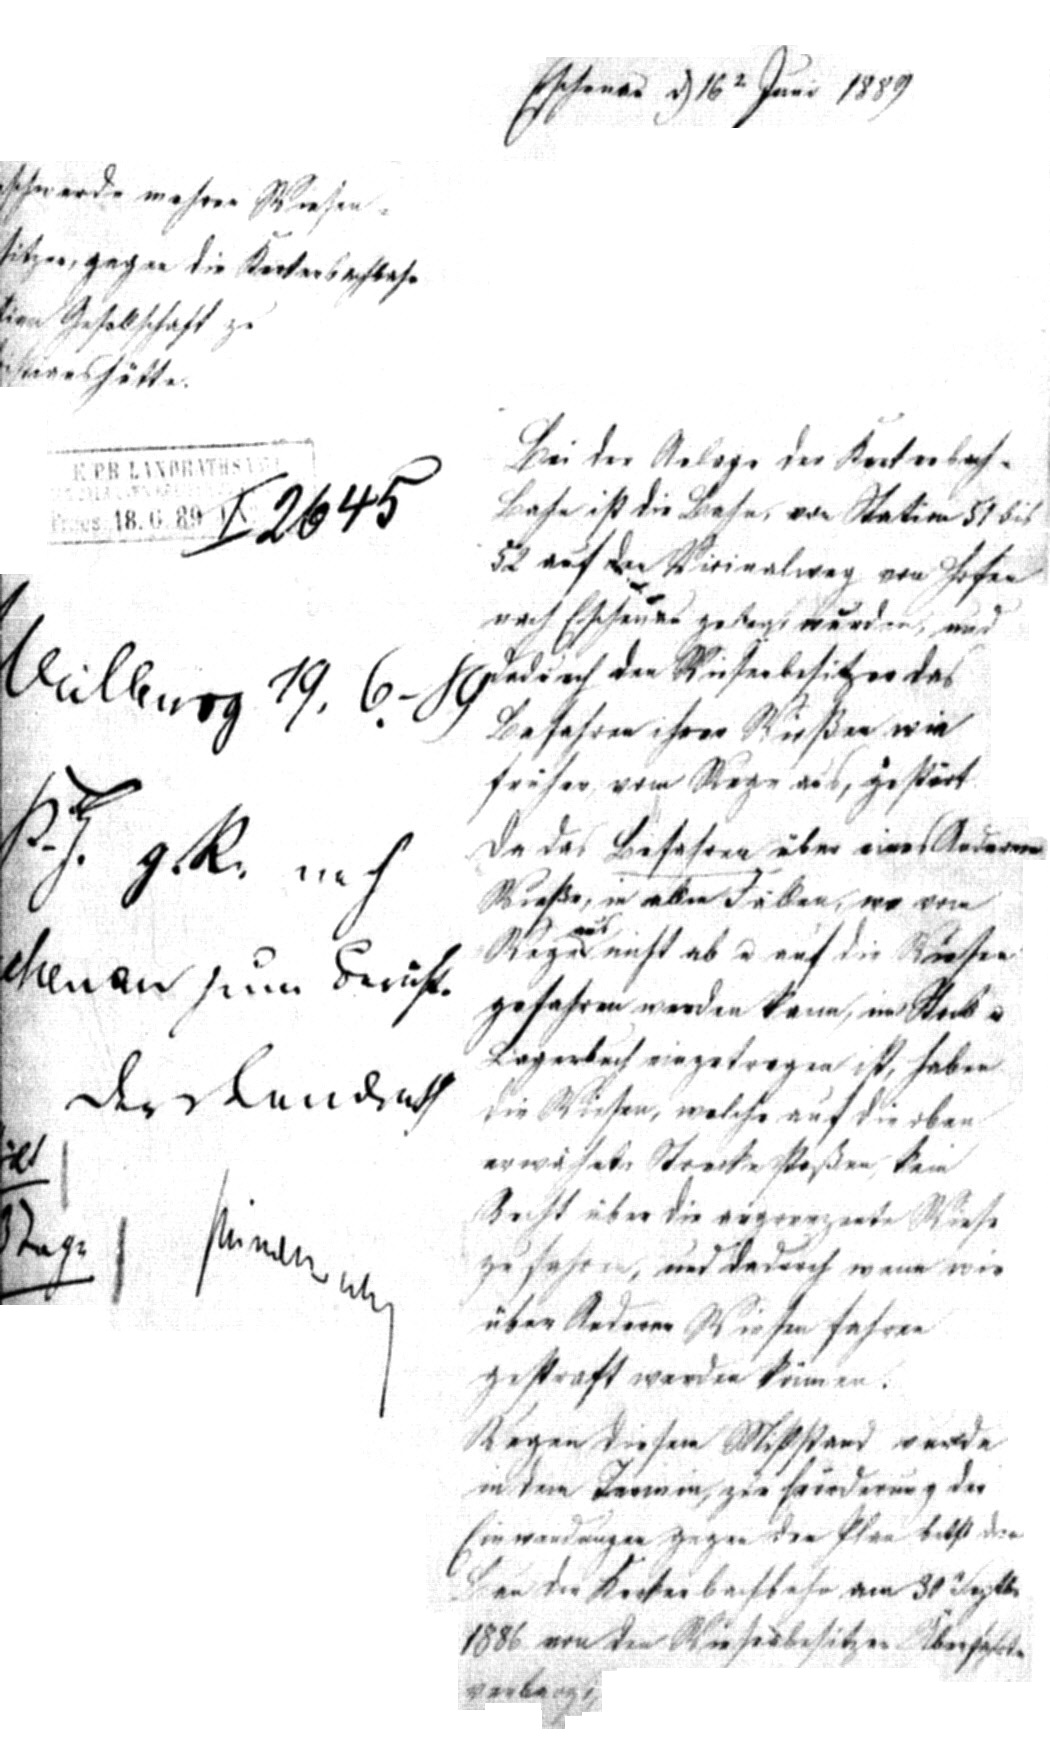 Eschenau d) 16ᵗ Juni 1889
schwerde mehrer Wiesen-
sitzer, gegen die Kerkerbachbahn
tien Gesellschaft zu
shütte.
K. PR. LANDRATHSAMT
Praes. 18. 6. 89
I 2645
Weilburg 19. 6. 89
g. R. nach
chenau zum Bericht.
Der Landrath
3 Tage
Bei der Anlage der Kerkerbach-
Bahn ist die Bahn, von Station 51 bis
52 auf den Vicinalweg von Hofen
nach Eschenau gelegt wurden, und
dadurch den Wiesenbesitzer das
Befahren ihrer Wießen wie
früher, vom Wege aus, gestört.
Da das Befahren über eines Anderen
Wieße, in allen Fällen, wo vom
Wege aus nicht ab u auf die Wiesen
gefahren werden kann, im Stock u
Lagerbuch eingetragen ist, haben
die Wiesen, welche auf die oben
erwähnte Strecke stoßen, kein
Recht über die angrenzente Wiese
zu fahren, und dadurch wenn wir
über Anderer Wiesen fahren
gestraft werden können.
Wegen diesem Mißstand wurde
in dem Termin, zur Erörderung der
Einwendungen gegen den Plan betst den
Bau der Kerkerbachbahn am 30ᵗ Septbr
1886 von den Wiesenbesitzer Überfahrten
verlangt,